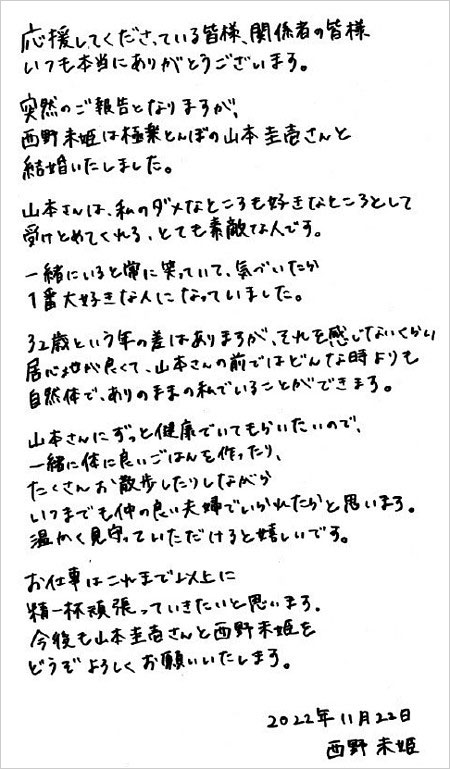 応援してくださっている皆様、関係者の皆様
いつも本当にありがとうございます。
突然のご報告となりますが、
西野未姫は極楽とんぼの山本圭壱さんと
結婚いたしました。
山本さんは、私のダメなところも好きなところとして
受けとめてくれる、とても素敵な人です。
一緒にいると常に笑っていて、気づいたら
1番大好きな人になっていました。
32歳という年の差はありますが、それを感じないくらい
居心地が良くて、山本さんの前ではどんな時よりも
自然体で、ありのままの私でいることができます。
山本さんにずっと健康でいてもらいたいので、
一緒に体に良いごはんを作ったり、
たくさんお散歩したりしながら
いつまでも仲の良い夫婦でいられたらと思います。
温かく見守っていただけると嬉しいです。
お仕事はこれまで以上に
精一杯頑張っていきたいと思います。
今後も山本圭壱さんと西野未姫を
どうぞよろしくお願いいたします。
2022年11月22日
西野未姫